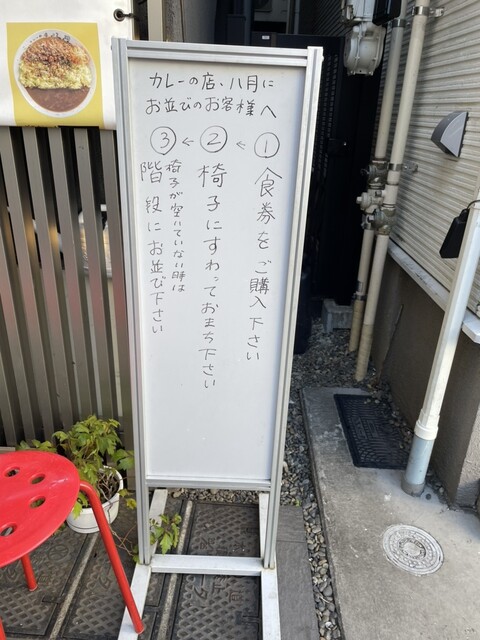 カレーの店、八月に
お並びのお客様へ
① ← ② ← ③
食券をご購入下さい
椅子にすわっておまち下さい
椅子が空いていない時は
階段にお並び下さい